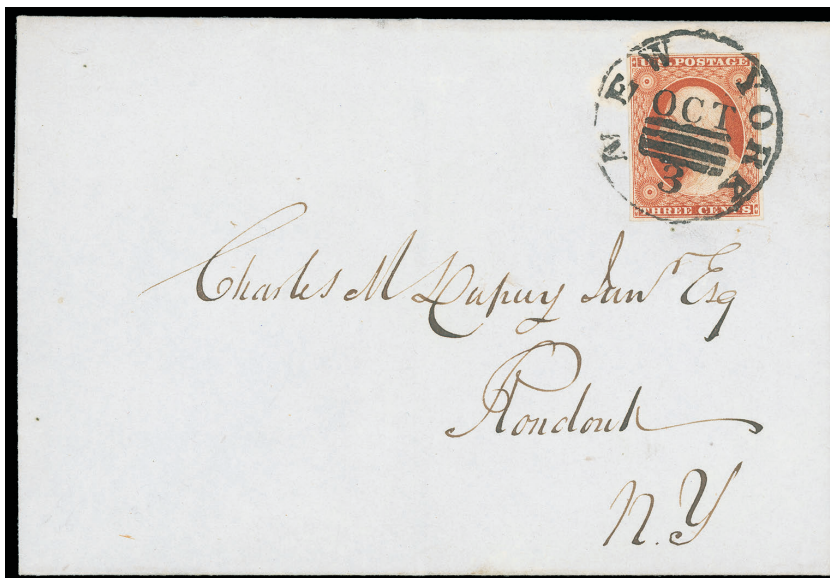 NEW YORK
OCT
3
U.S. POSTAGE
THREE CENTS
Charles M Dupuy Junr Esq
Rondout
N.Y